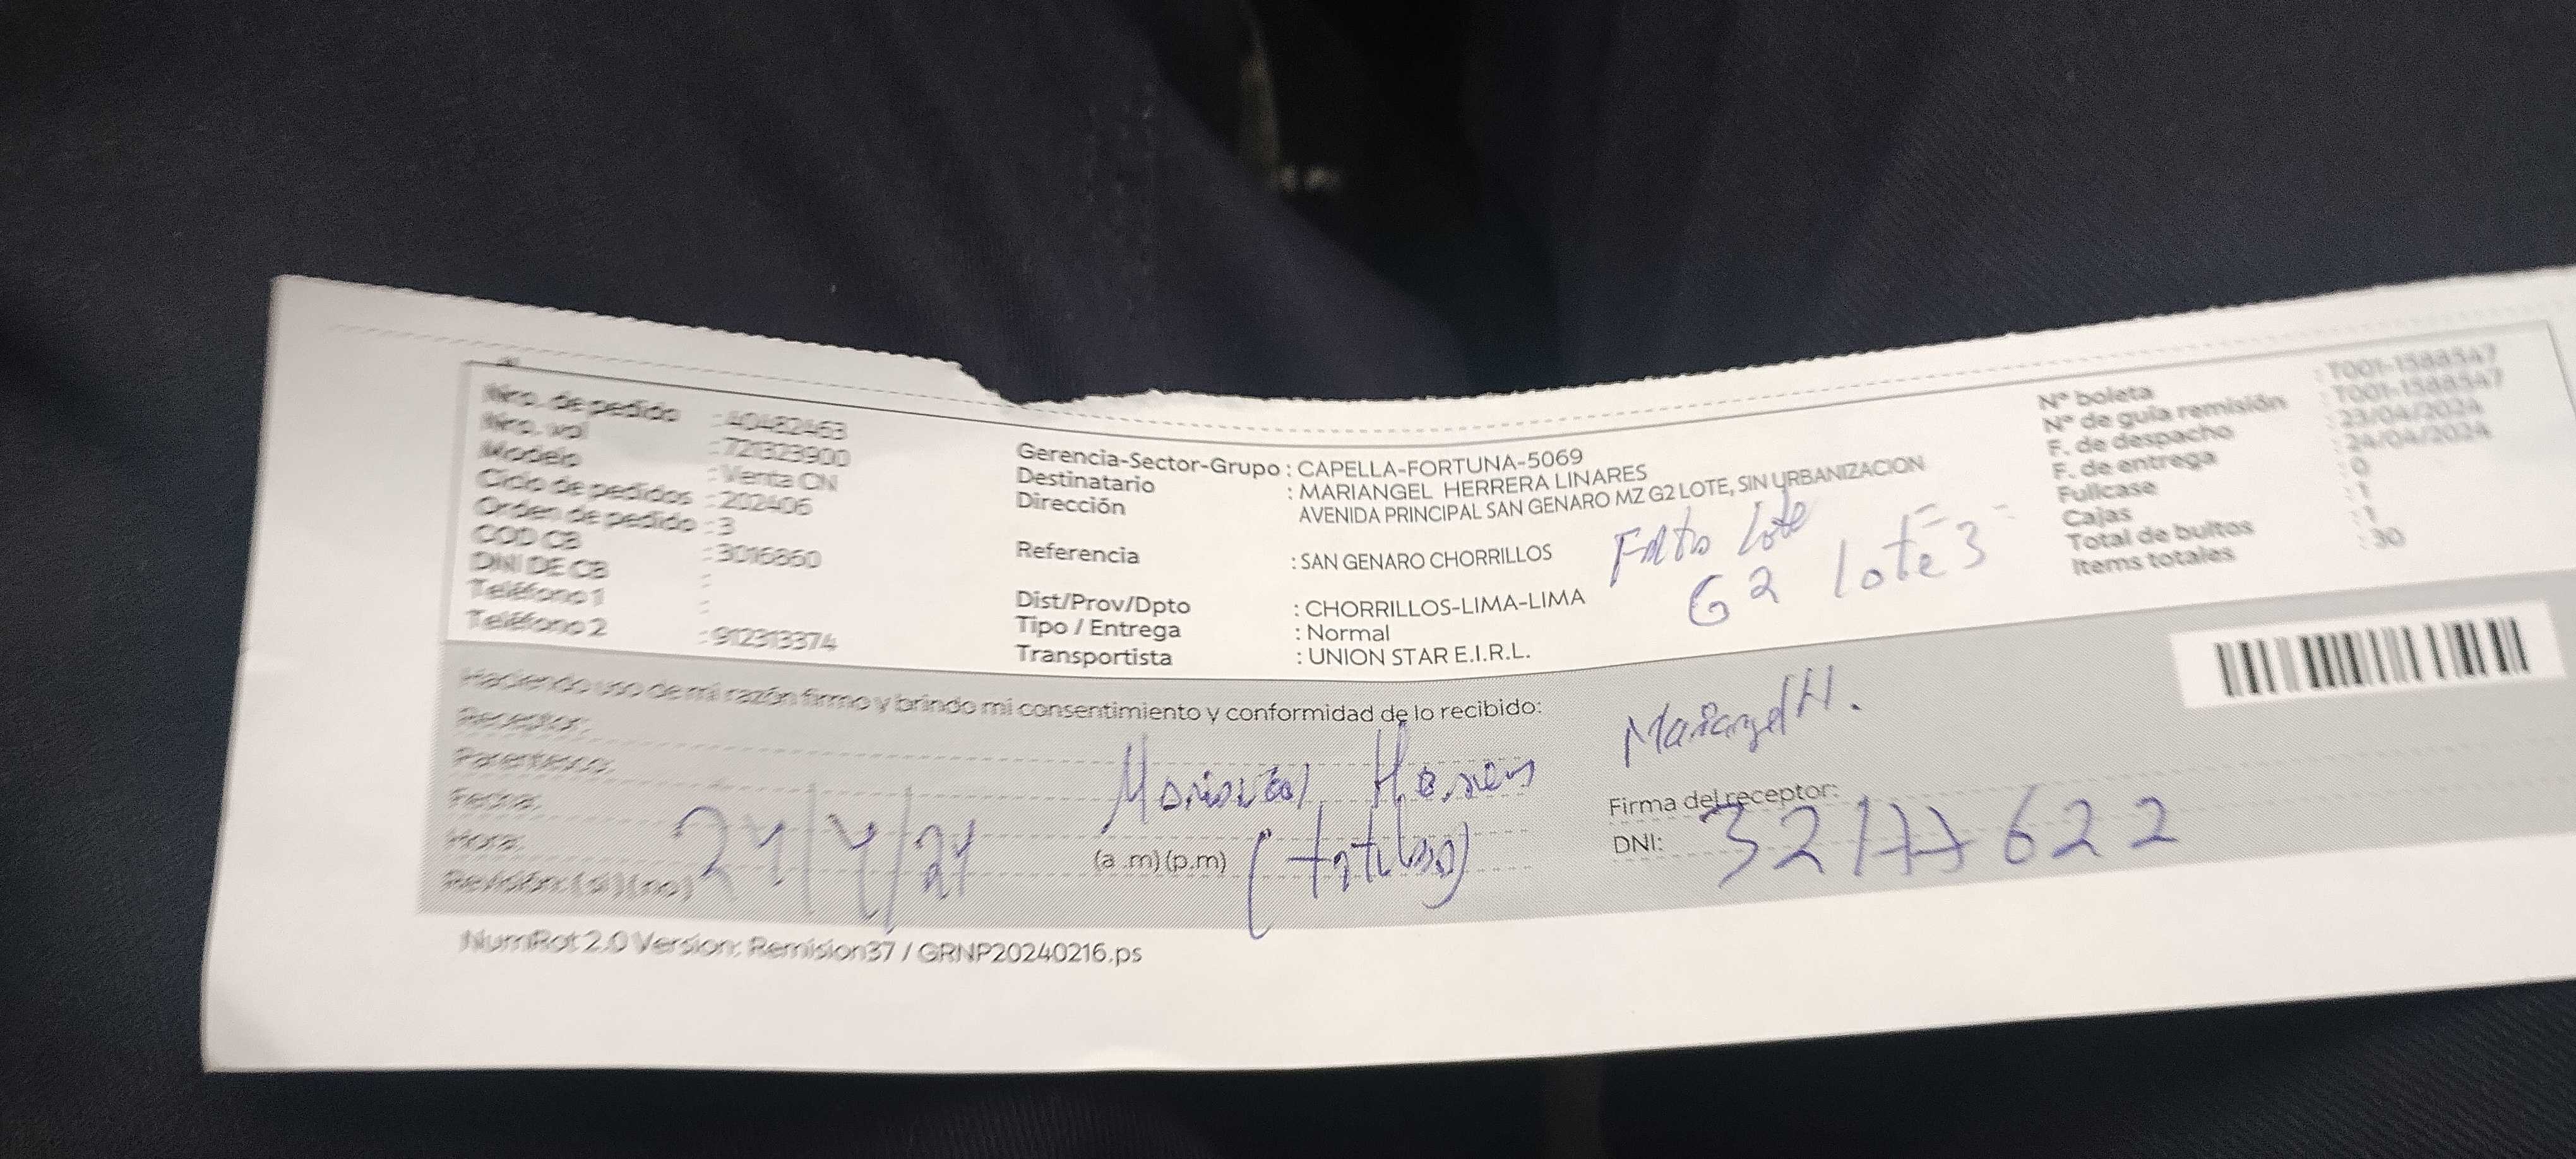 Nro. de pedido : 40482463
Nro. val : 721323900
Modelo : Venta CN
Ciclo de pedidos : 202406
Orden de pedido : 3
COD CB : 3016860
DNI DE CB :
Teléfono 1 :
Teléfono 2 : 912313374
Gerencia-Sector-Grupo : CAPELLA-FORTUNA-5069
Destinatario : MARIANGEL HERRERA LINARES
Dirección : AVENIDA PRINCIPAL SAN GENARO MZ G2 LOTE, SIN URBANIZACION
Referencia : SAN GENARO CHORRILLOS
Dist/Prov/Dpto : CHORRILLOS-LIMA-LIMA
Tipo / Entrega : Normal
Transportista : UNION STAR E.I.R.L.
Falto lote
G2 lote 3
N° boleta : T001-1588547
N° de guía remisión : T001-1588547
F. de despacho : 23/04/2024
F. de entrega : 24/04/2024
Fullcase : 0
Cajas : 1
Total de bultos : 1
Items totales : 30
Haciendo uso de mi razón firmo y brindo mi consentimiento y conformidad de lo recibido:
Receptor:
Parentesco:
Fecha:
Hora: (a .m) (p.m)
Revisión: (si) (no)
24/4/24
(titular)
Mariangel H.
Firma del receptor:
DNI: 32177622
NumRot 2.0 Version: Remision37 / GRNP20240216.ps